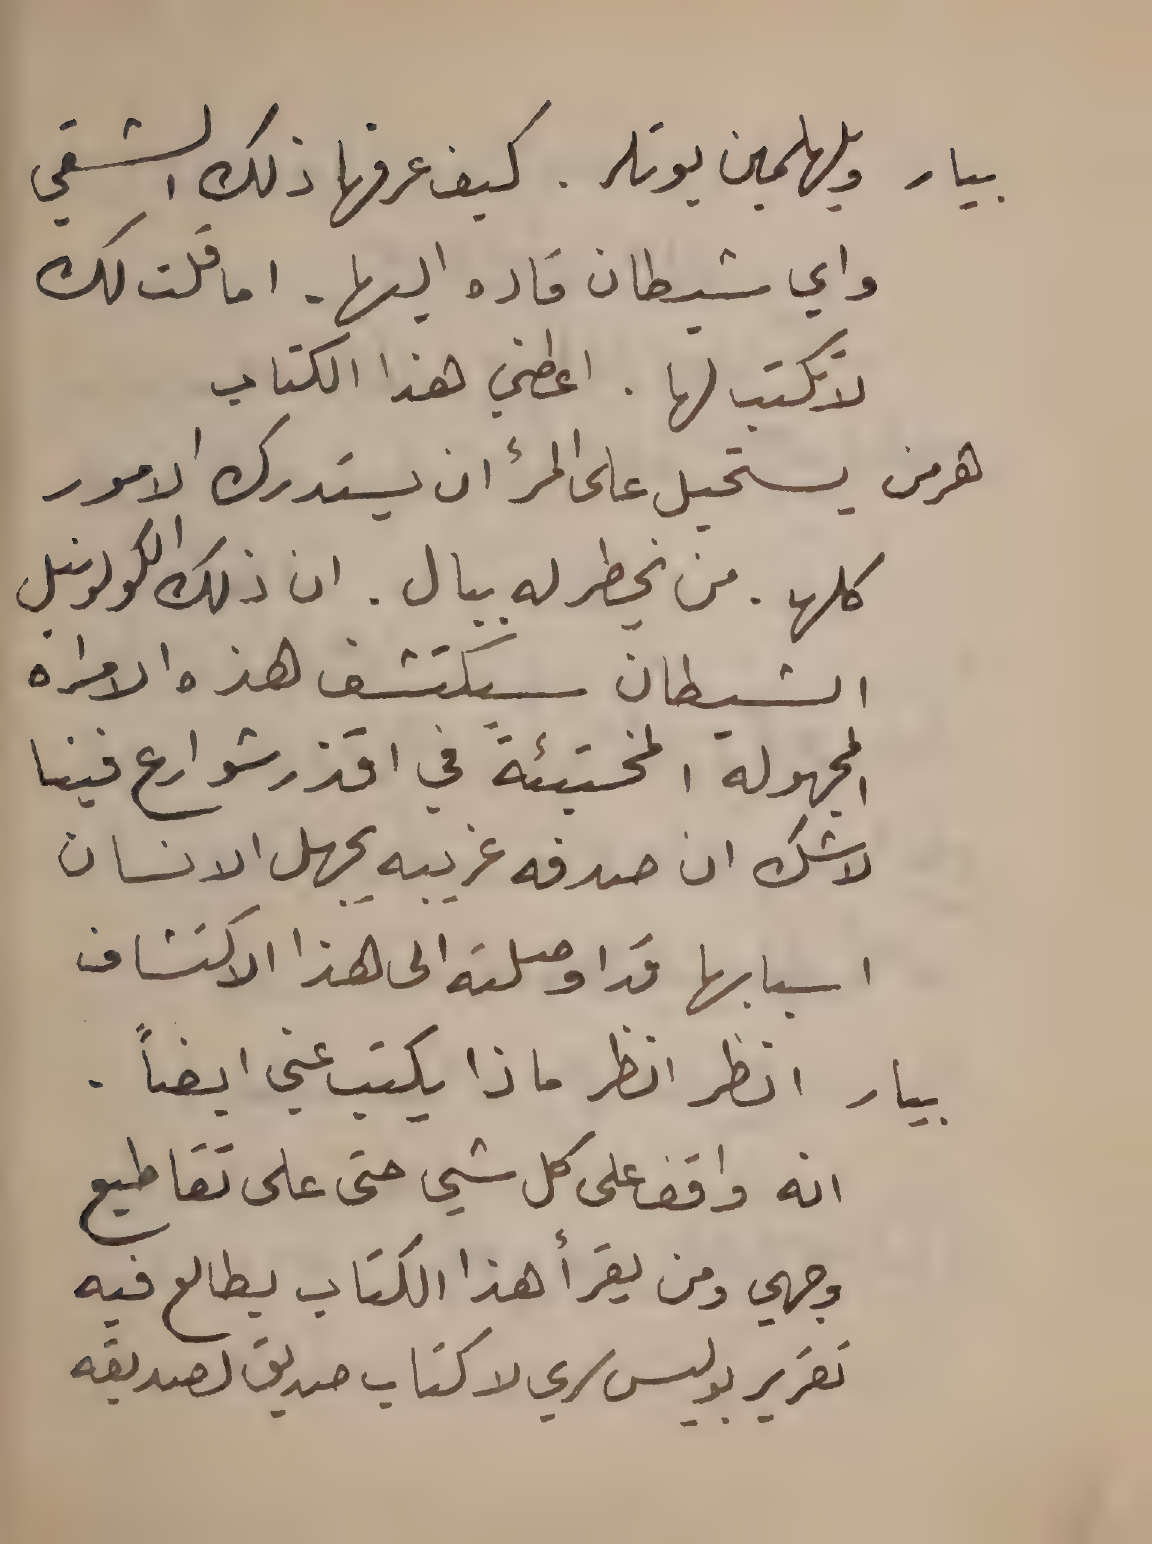 بيار ويلهلمين يوتلر . كيف عرفها ذلك الشقي
واي شيطان قاده اليها . اما قلت لك
لا تكتب لها . اعطني هذا الكتاب
هرمن يستحيل على المرئ ان يستدرك الامور
كلها . من يخطر له ببال . ان ذلك الكولونيل
الشيطان سيكتشف هذه الامراة
المجهولة المختبئة في اقذر شوارع فينا
لاشك ان صدفه غريبه يجهل الانسان
اسبابها قد اوصلته الى هذا الاكتشاف
بيار انظر انظر ماذا يكتب عني ايضاً .
انه واقف على كل شيي حتى على تقاطيع
وجهي ومن يقرأ هذا الكتاب يطالع فيه
تقرير بوليس سري لا كتاب صديق لصديقه